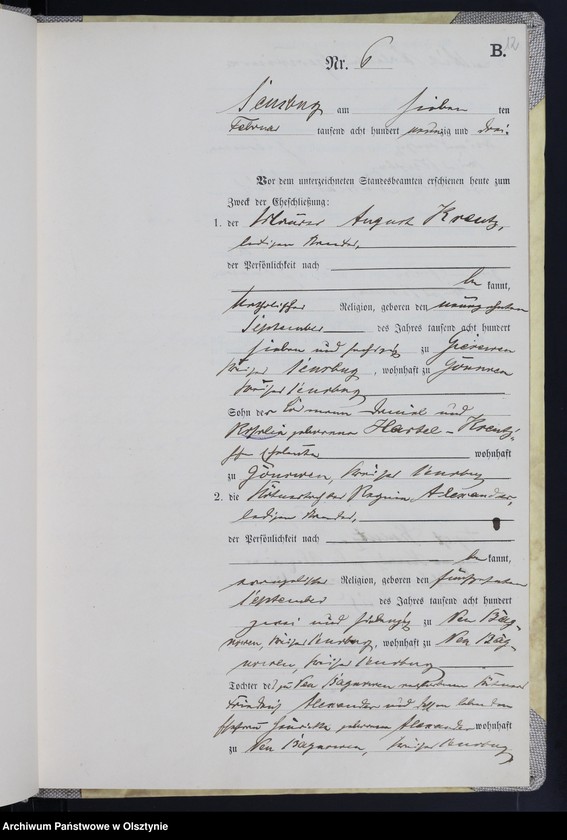 B.
12
Nr. 6
Sensburg am sieben ten
Februar tausend acht hundert neunzig und drei.
Vor dem unterzeichneten Standesbeamten erschienen heute zum
Zweck der Eheschließung:
1. der Maurer August Kreutz,
ledigen Standes,
der Persönlichkeit nach
be kannt,
katholischer Religion, geboren den neunzehnten
September des Jahres tausend acht hundert
sieben und sechszig zu
Kreises Sensburg, wohnhaft zu
Kreises Sensburg
Sohn der Daniel und
Rosalie geborenen Harbel - Kreutz'
schen Eheleute wohnhaft
zu Kreises Sensburg
2. die Regine Alexander,
ledigen Standes,
der Persönlichkeit nach
be kannt,
evangelischer Religion, geboren den fünfzehnten
September des Jahres tausend acht hundert
zwei und siebenzig zu Neu Bag-
nowen, Kreises Sensburg, wohnhaft zu Neu Bag-
nowen, Kreises Sensburg
Tochter des zu Neu Bagnowen verstorbenen
Friedrich Alexander und dessen lebenden
Ehefrau geborenen Alexander wohnhaft
zu Neu Bagnowen, Kreises Sensburg
Archiwum Państwowe w Olsztynie